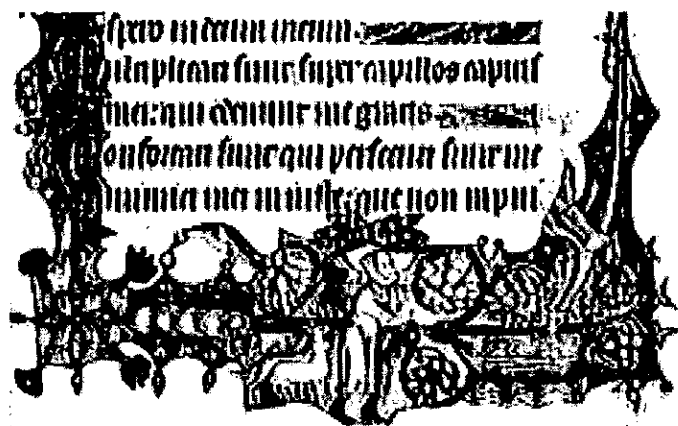 spero in deum meum.
ultiplicati sunt super capillos capitis
mei: qui oderunt me gratis.
onfortati sunt qui persecuti sunt me
inimici mei iniuste: que non rapui